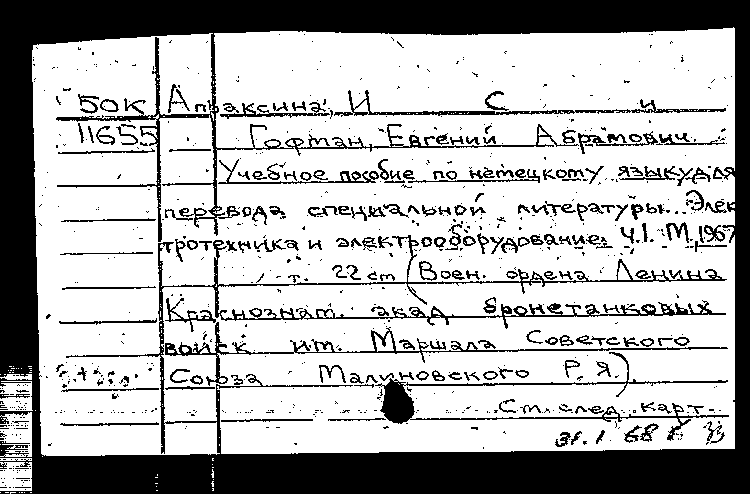 50К Апраксина, И С и
11655 Гофман, Евгений Абрамович.
Учебное пособие по немецкому языку для
перевода специальной литературы. Элек
тротехника и электрооборудование. Ч.1. М., 1967
т. 22 см (Воен. ордена Ленина
Краснознам. акад. бронетанковых
войск им. Маршала Советского
Союза Малиновского Р. Я.).
См. след. карт.
31.1 68 г